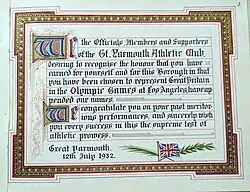 We the Officials, Members and Supporters
of the Gt. Yarmouth Athletic Club,
desiring to recognise the honour that you have
earned for yourself and for this Borough in that
you have been chosen to represent Great Britain
in the Olympic Games at Los Angeles, have ap
pended our names.
We congratulate you on your past merit
orious performances, and sincerely wish
you every success in this the supreme test of
athletic prowess.
Great Yarmouth.
12th July 1932.